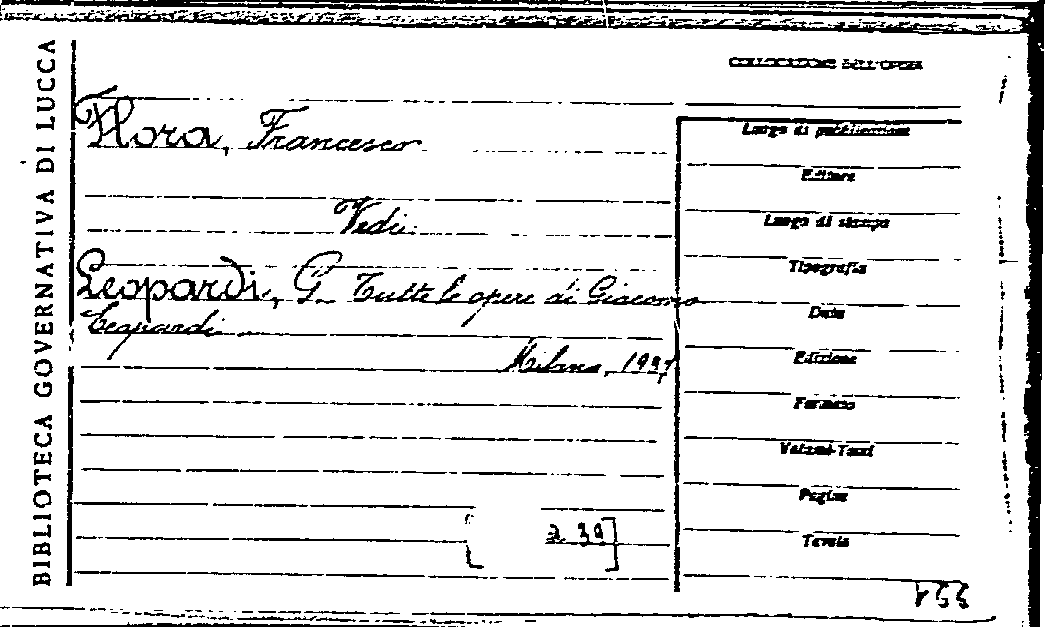 BIBLIOTECA GOVERNATIVA DI LUCCA
COLLOCAZIONE DELL'OPERA
Flora, Francesco
Vedi
Leopardi, G. Tutte le opere di Giacomo
Leopardi
Milano,
Luogo di pubblicazione
Editore
Luogo di stampa
Tipografia
Data
Edizione
Formato
Volumi-Tomi
Pagine
Tavole